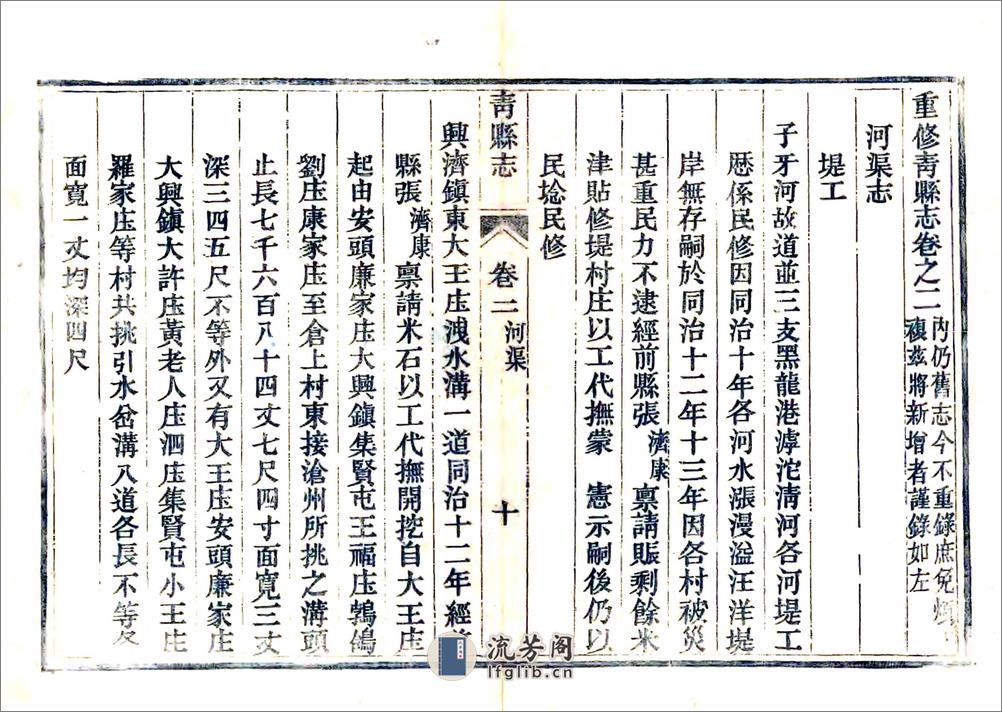 重修靑縣志卷之二
內仍舊志今不重錄庶免煩
複茲將新增者謹錄如左
河渠志
堤工
子牙河故道並三支黑龍港滹沱淸河各河堤工
歷係民修因同治十年各河水漲漫溢汪洋堤
岸無存嗣於同治十二年十三年因各村被災
甚重民力不逮經前縣張濟康稟請賑剩餘米
津貼修堤村庄以工代撫蒙 憲示嗣後仍以
民埝民修
靑縣志 卷二 河渠 十
興濟鎭東大王庒洩水溝一道同治十二年經
縣張濟康稟請米石以工代撫開挖自大王庒
起由安頭廉家庒大興鎭集賢屯王福庒鵓鴿
劉庒康家庒至倉上村東接滄州所挑之溝頭
止長七千六百八十四丈七尺四寸面寬三丈
深三四五尺不等外又有大王庒安頭廉家庒
大興鎭大許庒黃老人庒泗庒集賢屯小王庒
羅家庒等村共挑引水岔溝八道各長不等各
面寬一丈均深四尺
流芳阁
lfglib.cn